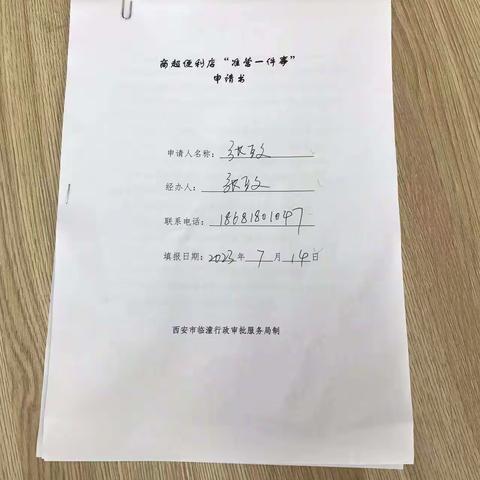 商超便利店“准营一件事”
申请书
申请人名称：张
经办人：张
联系电话：18681801047
填报日期：2023年7月14日
西安市临潼行政审批服务局制